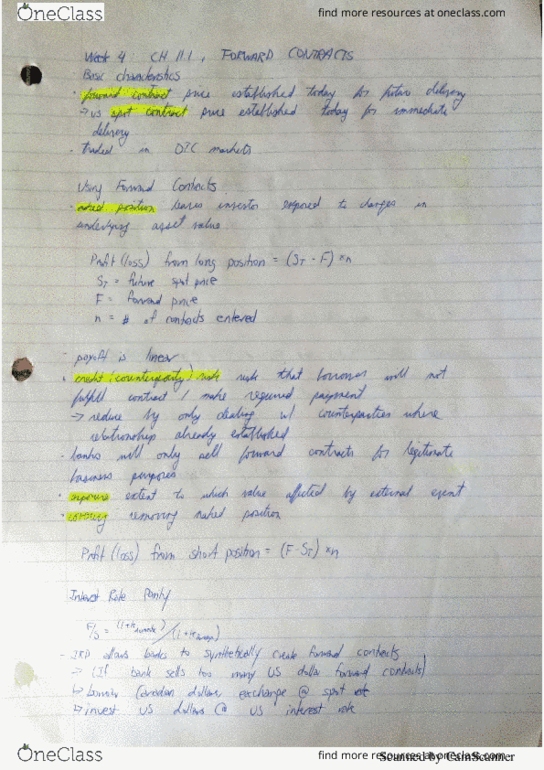 OneClass find more resources at oneclass.com
Week 4: CH 11.1, FORWARD CONTRACTS
Basic characteristics
· forward contract price established today for future delivery
→ vs spot contract price established today for immediate
delivery
· traded in OTC markets
Using Forward Contracts
· naked position leaves investor exposed to changes in
underlying asset value
Profit (loss) from long position = (ST - F) × n
ST = future spot price
F = forward price
n = # of contacts entered
- payoff is linear
· credit (counterparty) risk risk that borrower will not
fulfill contract / make required payment
→ reduce by only dealing w/ counterparties where
relationship already established
· banks will only sell forward contracts for legitimate
business purposes
· exposure extent to which value affected by external event
· covering removing naked position
Profit (loss) from short position = (F - ST) × n
Interest Rate Parity
F/S = (1+r
- IRP allows banks to synthetically create forward contracts
→ (If bank sells too many US dollar forward contracts)
↳ borrow Canadian dollars exchange @ spot rate
↳ invest US dollars @ US interest rate
OneClass find more resources at oneclass.com
Scanned by CamScanner